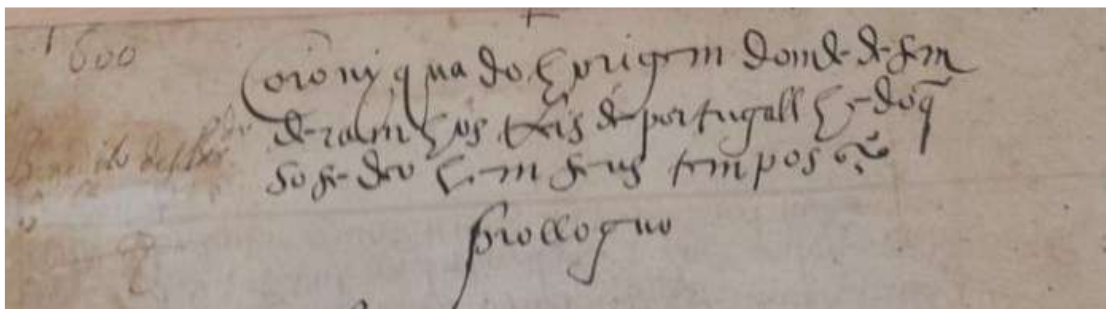 1600
Coroniqua do horigem donde desem
deram hos Reis de portugall he doq̃
sosedeo hem seus tempos
prollogno